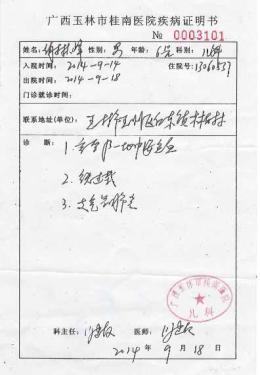 广西玉林市桂南医院疾病证明书
№ 0003101
姓名: 性别: 男 年龄: 6岁 科别: 儿科
入院时间: 2014-9-14 住院号: 1306053
出院时间: 2014-9-18
门诊就诊时间:
联系地址(单位): 玉林市玉州区
诊 断: 1. 重型β-地中海贫血
2. 铁过载
3. 支气管肺炎
儿科
科主任: 医师:
2014 年 9 月 18 日